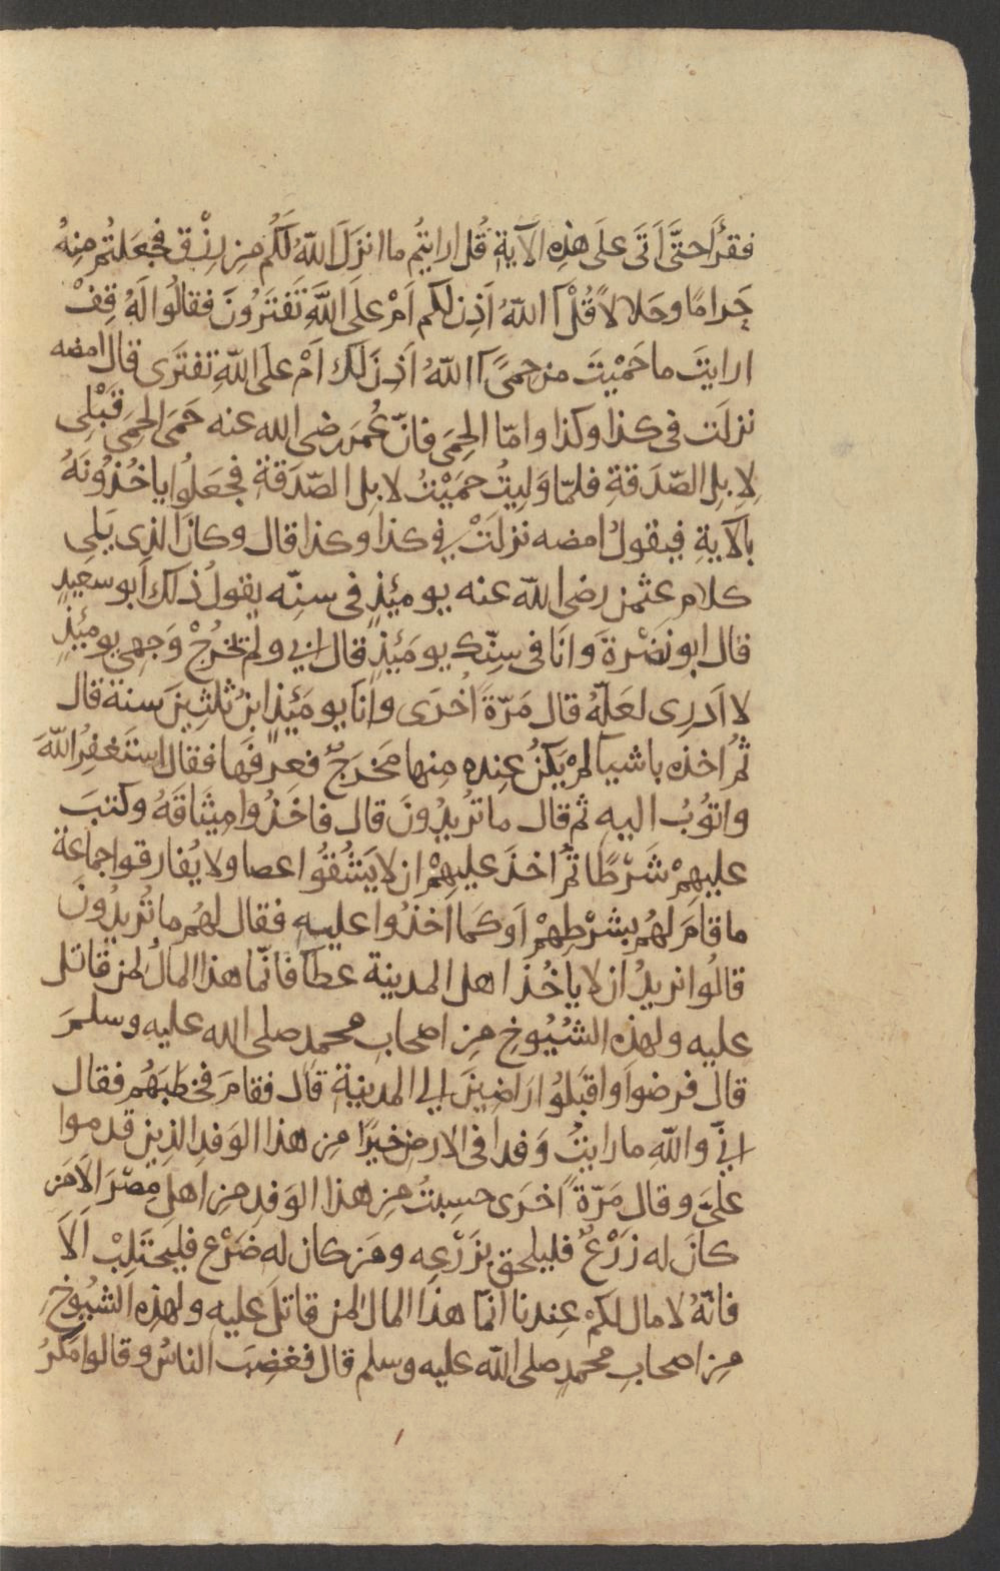 فقرأ حتَّى اَتَى على هذِهِ الآيةِ قُل ارايتُم ما انزلَ اللّهُ لَكُم مِن رِزْقٍ فجعَلتُم مِنهُ
حَرامًا وحَلالاً قُلْ آللّهُ اَذِن لكم اَمْ علَى اللّهِ تَفتَرُونَ فقالُوا لَهُ قِفْ
ارايتَ ما حَمْيتَ من حِمىً آللّهُ اَذِنَ لَك اَمْ على اللّهِ تفتَرى قال امضه
نزلَت فى كذا وكذا وامّا الحِمَى فانّ عُمَر رضى الله عنه حَمَى الحِمَى قَبْلِى
لاِبِلِ الصّدَقةِ فلمّا وَلِيتُ حمَيْتُ لابِلِ الصّدَقةِ فجَعَلُوا ياخُذُونَهُ
بالآيةِ فيقولُ امضه نزلَتْ فى كذا وكذا قال وكانَ الذى يَلِى
كلام عثمن رضى اللّه عنه يوميئذٍ فى سنِّه يقولُ ذلك اَبو سعيدٍ
قال ابو نضْرةَ وانَا فى سِنِّك يومَئذٍ قال انى ولم تخرُجْ وَجهِى يوميئذٍ
لا اَدرِى لعَلّهُ قال مَرّةً اُخرَى وانَا يومَئذٍ ابنُ ثلثِينَ سنة قال
ثُمّ اخذه باشيا لم يَكنْ عِنده مِنها مَخرَجٌ فعرفَها فقال استَغفِرُ اللّهَ
واتُوبُ اليه ثم قال ما تُريدُونَ قال فاخَذُوا مِيثاقَهُ وكتبَ
عليهِمْ شَرْطًا ثمّ اخذَ عليهِمْ ان لا يَشُقُّوا عصا ولا يُفارقوا جماعَة
ما قامَ لهُم بشرْطِهمْ اَو كَما اَخَذُوا عليه فقال لهُم ما تُريدُونَ
قالُوا نريدُ ان لا ياخُذَ اهل المدينة عطآ فانّما هذا المالُ لمن قاتل
عليه ولهذه الشُيُوخِ مِن اصحابِ محمدٍ صلى الله عليه وسلمَ
قال فرضوا واقبَلُوا راضِينَ الى المدينةِ قال فقامَ فخطبَهُم فقال
انىّ واللّهِ ما رايتُ وَفدا فى الارض خيرًا مِن هذا الوَفدِ الذِين قدموا
علىَّ وقال مَرّةً اخرَى حسِبتُ مِن هذا الوَفدِ مِن اهل مِصْرَ الاَ مَن
كانَ له زَرْعٌ فليلحق بزَرْعِه ومَن كان له ضَرْع فليَحتَلِبْ اَلاَ
فانّهُ لا مال لكمْ عِندنا انّما هذا المال لمن قاتلَ عليه ولهذِه الشُيُوخِ
مِن اصحابِ محمدٍ صلى اللّه عليه وسلم قال فغضِبَ الناسُ وقالوا مَكرُ